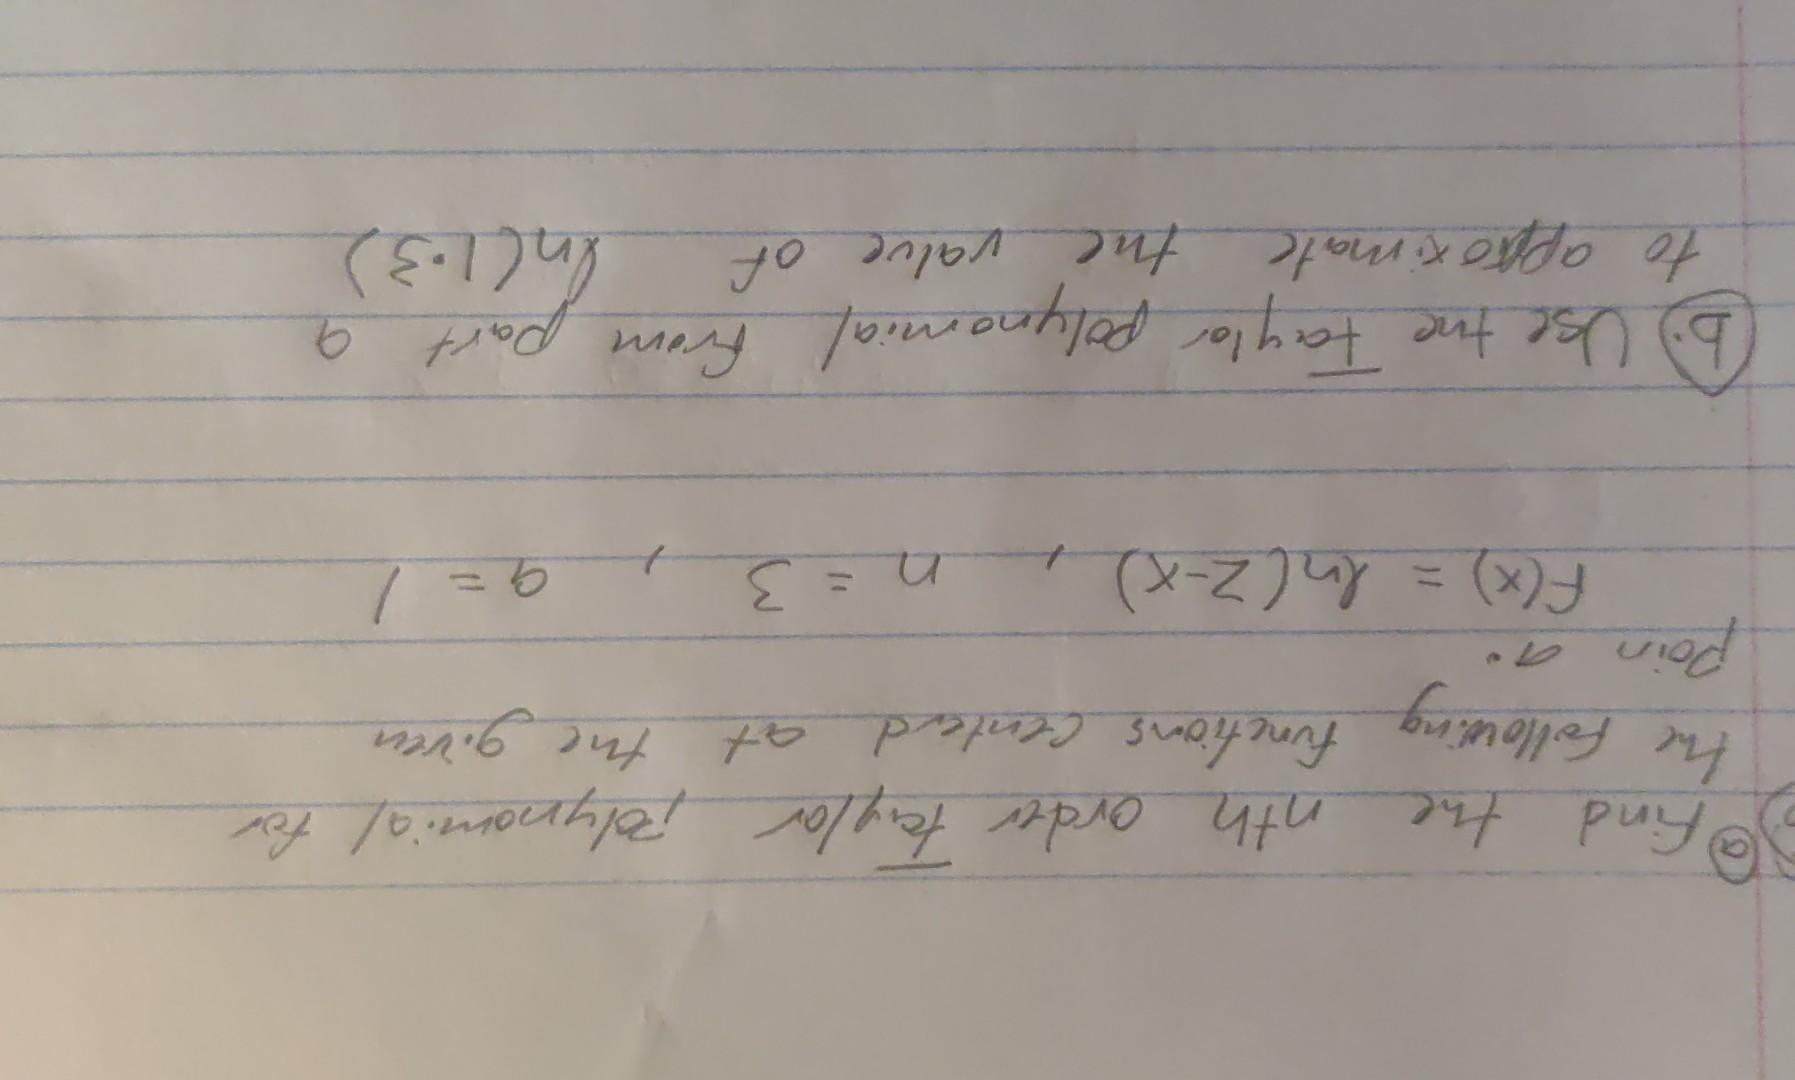 ⓐ Find the nth order Taylor polynomial for
the following functions centerd at the given
poin a.
F(x) = ln(2-x) , n = 3 , a = 1
b. Use the Taylor polynomial from part a
to approximate the value of ln(1.3)